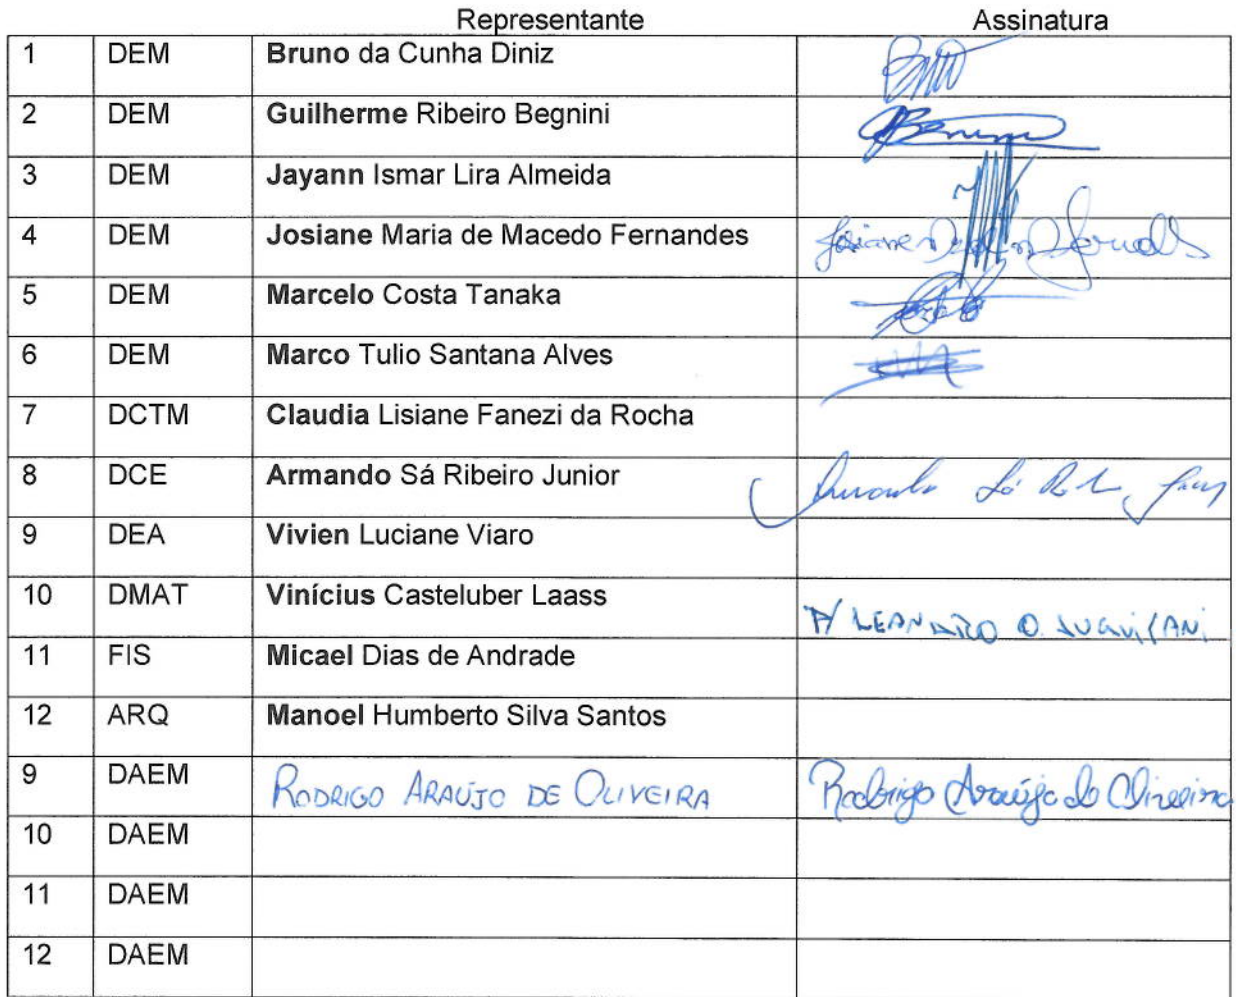 Representante Assinatura
1 DEM Bruno da Cunha Diniz
2 DEM Guilherme Ribeiro Begnini
3 DEM Jayann Ismar Lira Almeida
4 DEM Josiane Maria de Macedo Fernandes Josiane
5 DEM Marcelo Costa Tanaka
6 DEM Marco Tulio Santana Alves
7 DCTM Claudia Lisiane Fanezi da Rocha
8 DCE Armando Sá Ribeiro Junior
9 DEA Vivien Luciane Viaro
10 DMAT Vinícius Casteluber Laass P/ LEANDRO O.
11 FIS Micael Dias de Andrade
12 ARQ Manoel Humberto Silva Santos
9 DAEM RODRIGO ARAÚJO DE OLIVEIRA Rodrigo Araújo de Oliveira
10 DAEM
11 DAEM
12 DAEM